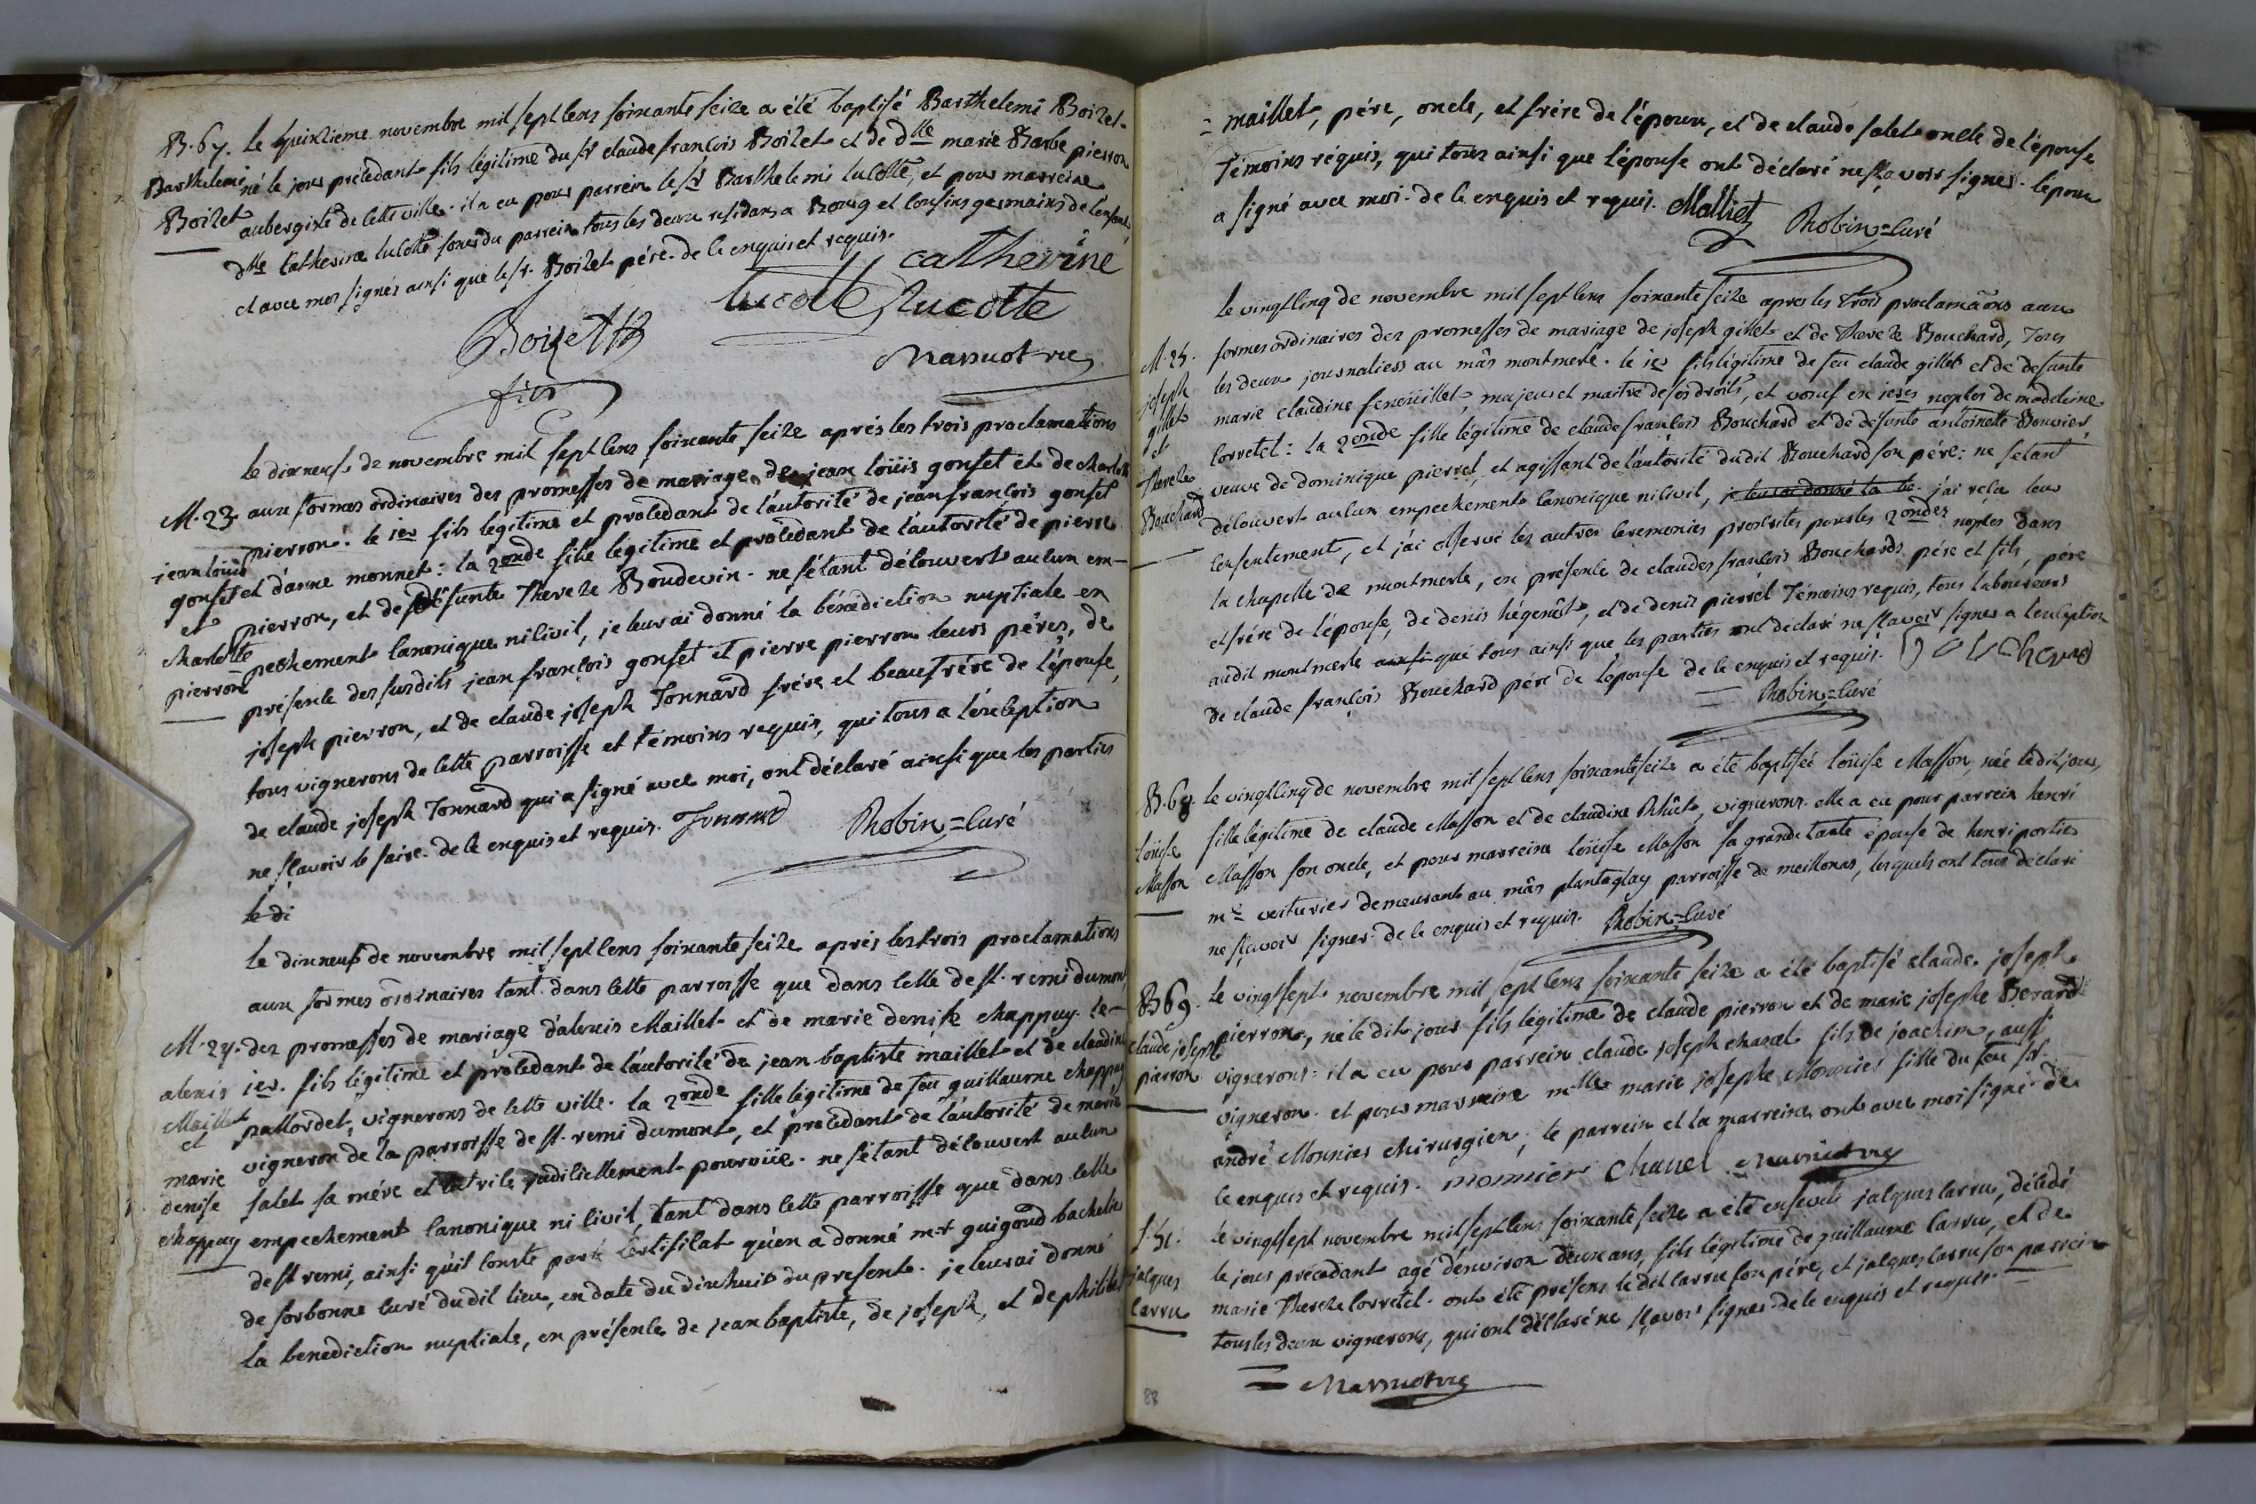 B. 67. le quinzieme novembre mil sept cens soixante seize a été baptisé Barthelemi Boizet
Barthelemi né le jour précédant fils légitime du sr claude françois Boizet et de dlle marie Barbe pierron
Boizet aubergiste de cette ville. il a eu pour parrein le sr Barthelemi lucotte, et pour marreine
dlle catherine lucotte soeur du parrein tous les deux résidans a Bourg et cousins germains de l'enfant
et avec moi signés ainsi que le sr. Boizet pére. de ce enquis et requis.
catherine
lucotte lucotte
Boizet
fils
Marmot vic
le dixneuf de novembre mil sept cens soixante seize aprés les trois proclamations
M. 23. aux formes ordinaires des promesses de mariage de jean loüis gonset et de charlotte
jean loüis pierron: le 1er fils légitime et procédant de l'autorité de jean françois gonset
gonset et d'anne monnet: la 2onde fille légitime et procédant de l'autorité de pierre
et pierron, et de défunte Thereze Boudevin. ne s'étant découvert aucun em-
charlotte pechement canonique ni civil, je leur ai donné la bénédiction nuptiale en
pierron présence des susdits jean françois gonset et pierre pierron leurs pères, de
joseph pierron, et de claude joseph Tonnard frére et beaufrére de l'épouse,
tous vignerons de cette parroisse et témoins requis, qui tous a l'exception
de claude joseph Tonnard qui a signé avec moi, ont déclaré ainsi que les parties
ne sçavoir le faire. de ce enquis et requis. Tonnard Robin = curé
le di
le dixneuf de novembre mil sept cens soixante seize aprés les trois proclamations
aux formes ordinaires tant dans cette parroisse que dans celle de st. remi dumont
M. 24. des promesses de mariage d'alexis Maillet et de marie denise chappuy. le
alexis 1er. fils légitime et procédant de l'autorité de jean baptiste maillet et de claudine
Maillet pallordet, vignerons de cette ville. la 2onde fille légitime de feu guillaume chappuy
et vigneron de la parroisse de st. remi dumont, et procédant de l'autorité de marie
marie salet sa mére et judiciellement pourvüe. ne s'étant découvert aucun
denise empechement canonique ni civil, tant dans cette parroisse que dans celle
chappuy de st remi, ainsi qu'il conste par le certificat qu'en a donné mr guigoud bachelier
de sorbonne curé dudit lieu, en date du dixhuit du present. je leur ai donné
la benediction nuptiale, en présence de jean baptiste, de joseph, et de philibert
= maillet, pére, oncle, et frére de l'époux, et de claude salet oncle de l'épouse
Témoins réquis, qui tous ainsi que l'épouse ont déclaré ne sçavoir signer. l'époux
a signé avec moi. de ce enquis et requis. Malliet Robin = curé
le vingtcinq de novembre mil sept cens soixante seize apres les trois proclamaõns aux
M. 25. formes ordinaires des promesses de mariage de joseph gillet et de Thereze Bouchard, tous
joseph les deux journaliers au mâs montmerle. le 1er fils légitime de feu claude gillet et de defunte
gillet marie claudine fenoüillet, majeur et maitre de ses droits, et veuf en 1eres nopces de madeleine
et corretet: la 2onde fille légitime de claude françois Bouchard et de défunte antoinette Bouvier,
Thereze veuve de dominique pierret, et agissant de l'autorité dudit Bouchard son pére: ne s'étant
Bouchard découvert aucun empechement canonique ni civil, je leur ai donné la be. j'ai reçu leur
consentement, et j'ai observé les autres ceremonies prescrites pour les 2ondes nopces dans
la chapelle de montmerle, en présence de claudes françois Bouchards pére et fils, pére
et frére de l'épouse, de denis hégenût, et de denis pierrét Témoins requis, tous laboureurs
audit montmerle ainsi que tous ainsi que les parties ont déclaré ne sçavoir signer a l'exception
de claude françois Bouchard pére de l'épouse de ce enquis et requis.
Robin = curé
B. 68. le vingtcinq de novembre mil sept cens soixante seize a été baptisée loüise Masson, née ledit jour,
loüise fille légitime de claude Masson et de claudine Rhût, vignerons. elle a eu pour parrein henri
Masson Masson son oncle, et pour marreine loüise Masson sa grande tante épouse de henri portier
me voiturier demeurant au mâs plantaglay parroisse de meillonas, lesquels ont tous déclaré
ne sçavoir signer. de ce enquis et requis. Robin = curé
B 69. le vingtsept novembre mil sept cens soixante seize a été baptisé claude joseph
claude joseph pierron, né le dit jour fils légitime de claude pierron et de marie josephe Berard
pierron vignerons: il a eu pour parrein claude joseph chanel fils de joachim, aussi
vigneron. et pour marreine mlle marie josephe Monnier fille du feu sr
andré Monnier chirurgien; le parrein et la marreine ont avec moi signé. de
ce enquis et requis. monnier chanel Marmot vic
S. 51. le vingtsept novembre mil sept cens soixante seize a été enseveli jacques carru, décédé
jacques le jour précédant agé d'environ deux ans, fils légitime de guillaume carru, et de
carru marie Thereze corretet. ont été présens le dit carru son pére, et jacques carru son parrein
tous les deux vignerons, qui ont déclaré ne sçavoir signer de ce enquis et requis.
= Marmot vic
88